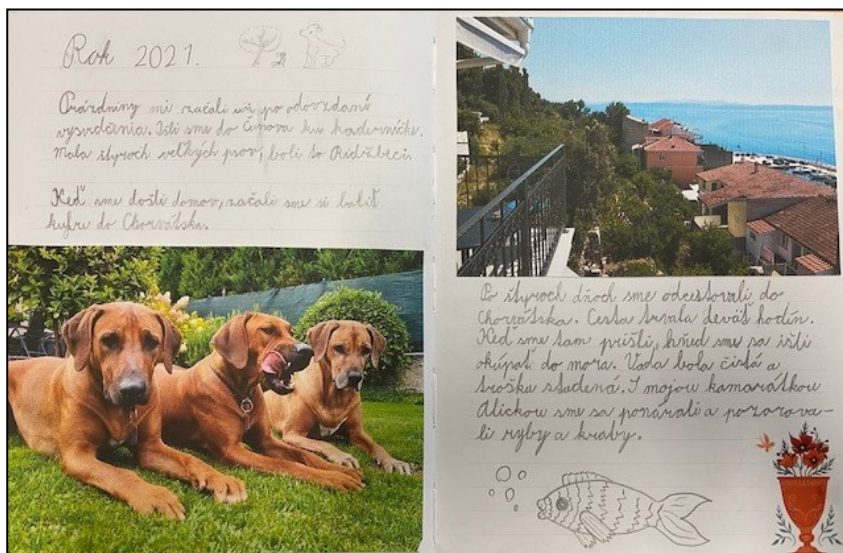 Rok 2021.
Prázdniny mi začali už po odovzdaní
vysvedčenia. Išli sme do Čunova ku kaderníčke.
Mala štyroch veľkých psov, boli to Ridžbeci.
Keď sme došli domov, začali sme si baliť
kufre do Chorvátska.
Po štyroch dňoch sme odcestovali do
Chorvátska. Cesta trvala deväť hodín.
Keď sme tam prišli, hneď sme sa išli
okúpať do mora. Voda bola čistá a
troška studená. S mojou kamarátkou
Alickou sme sa ponárali a pozorova-
li ryby a kraby.